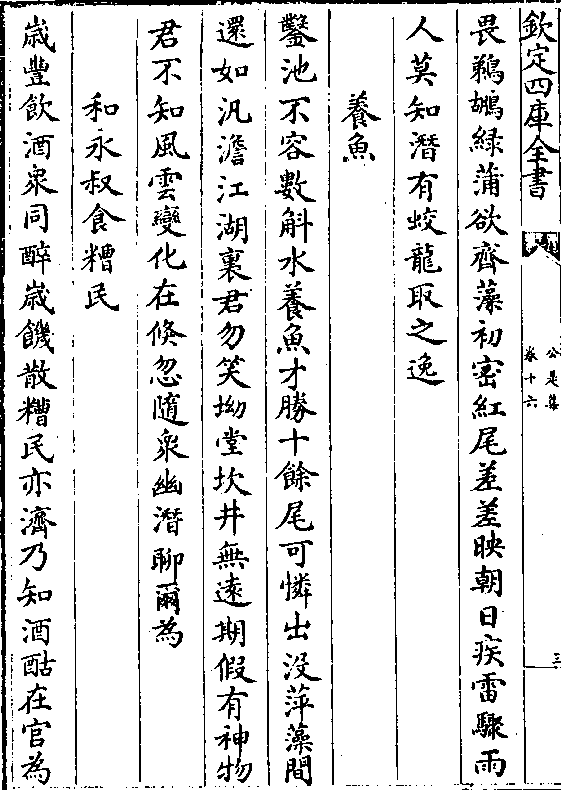 欽定四庫全書
公是集
卷十六
三
畏鵜鶘緑蒲欲齊藻初密紅尾差差映朝日疾雷驟雨
人莫知潛有蛟龍取之逸
養魚
鑿池不容數斛水養魚才勝十餘尾可憐出没萍藻間
還如汎澹江湖裏君勿笑坳堂坎井無遠期假有神物
君不知風雲變化在倐忽隨衆幽潛聊爾為
和永叔食糟民
嵗豐飲酒衆同醉嵗饑散糟民亦濟乃知酒酤在官為